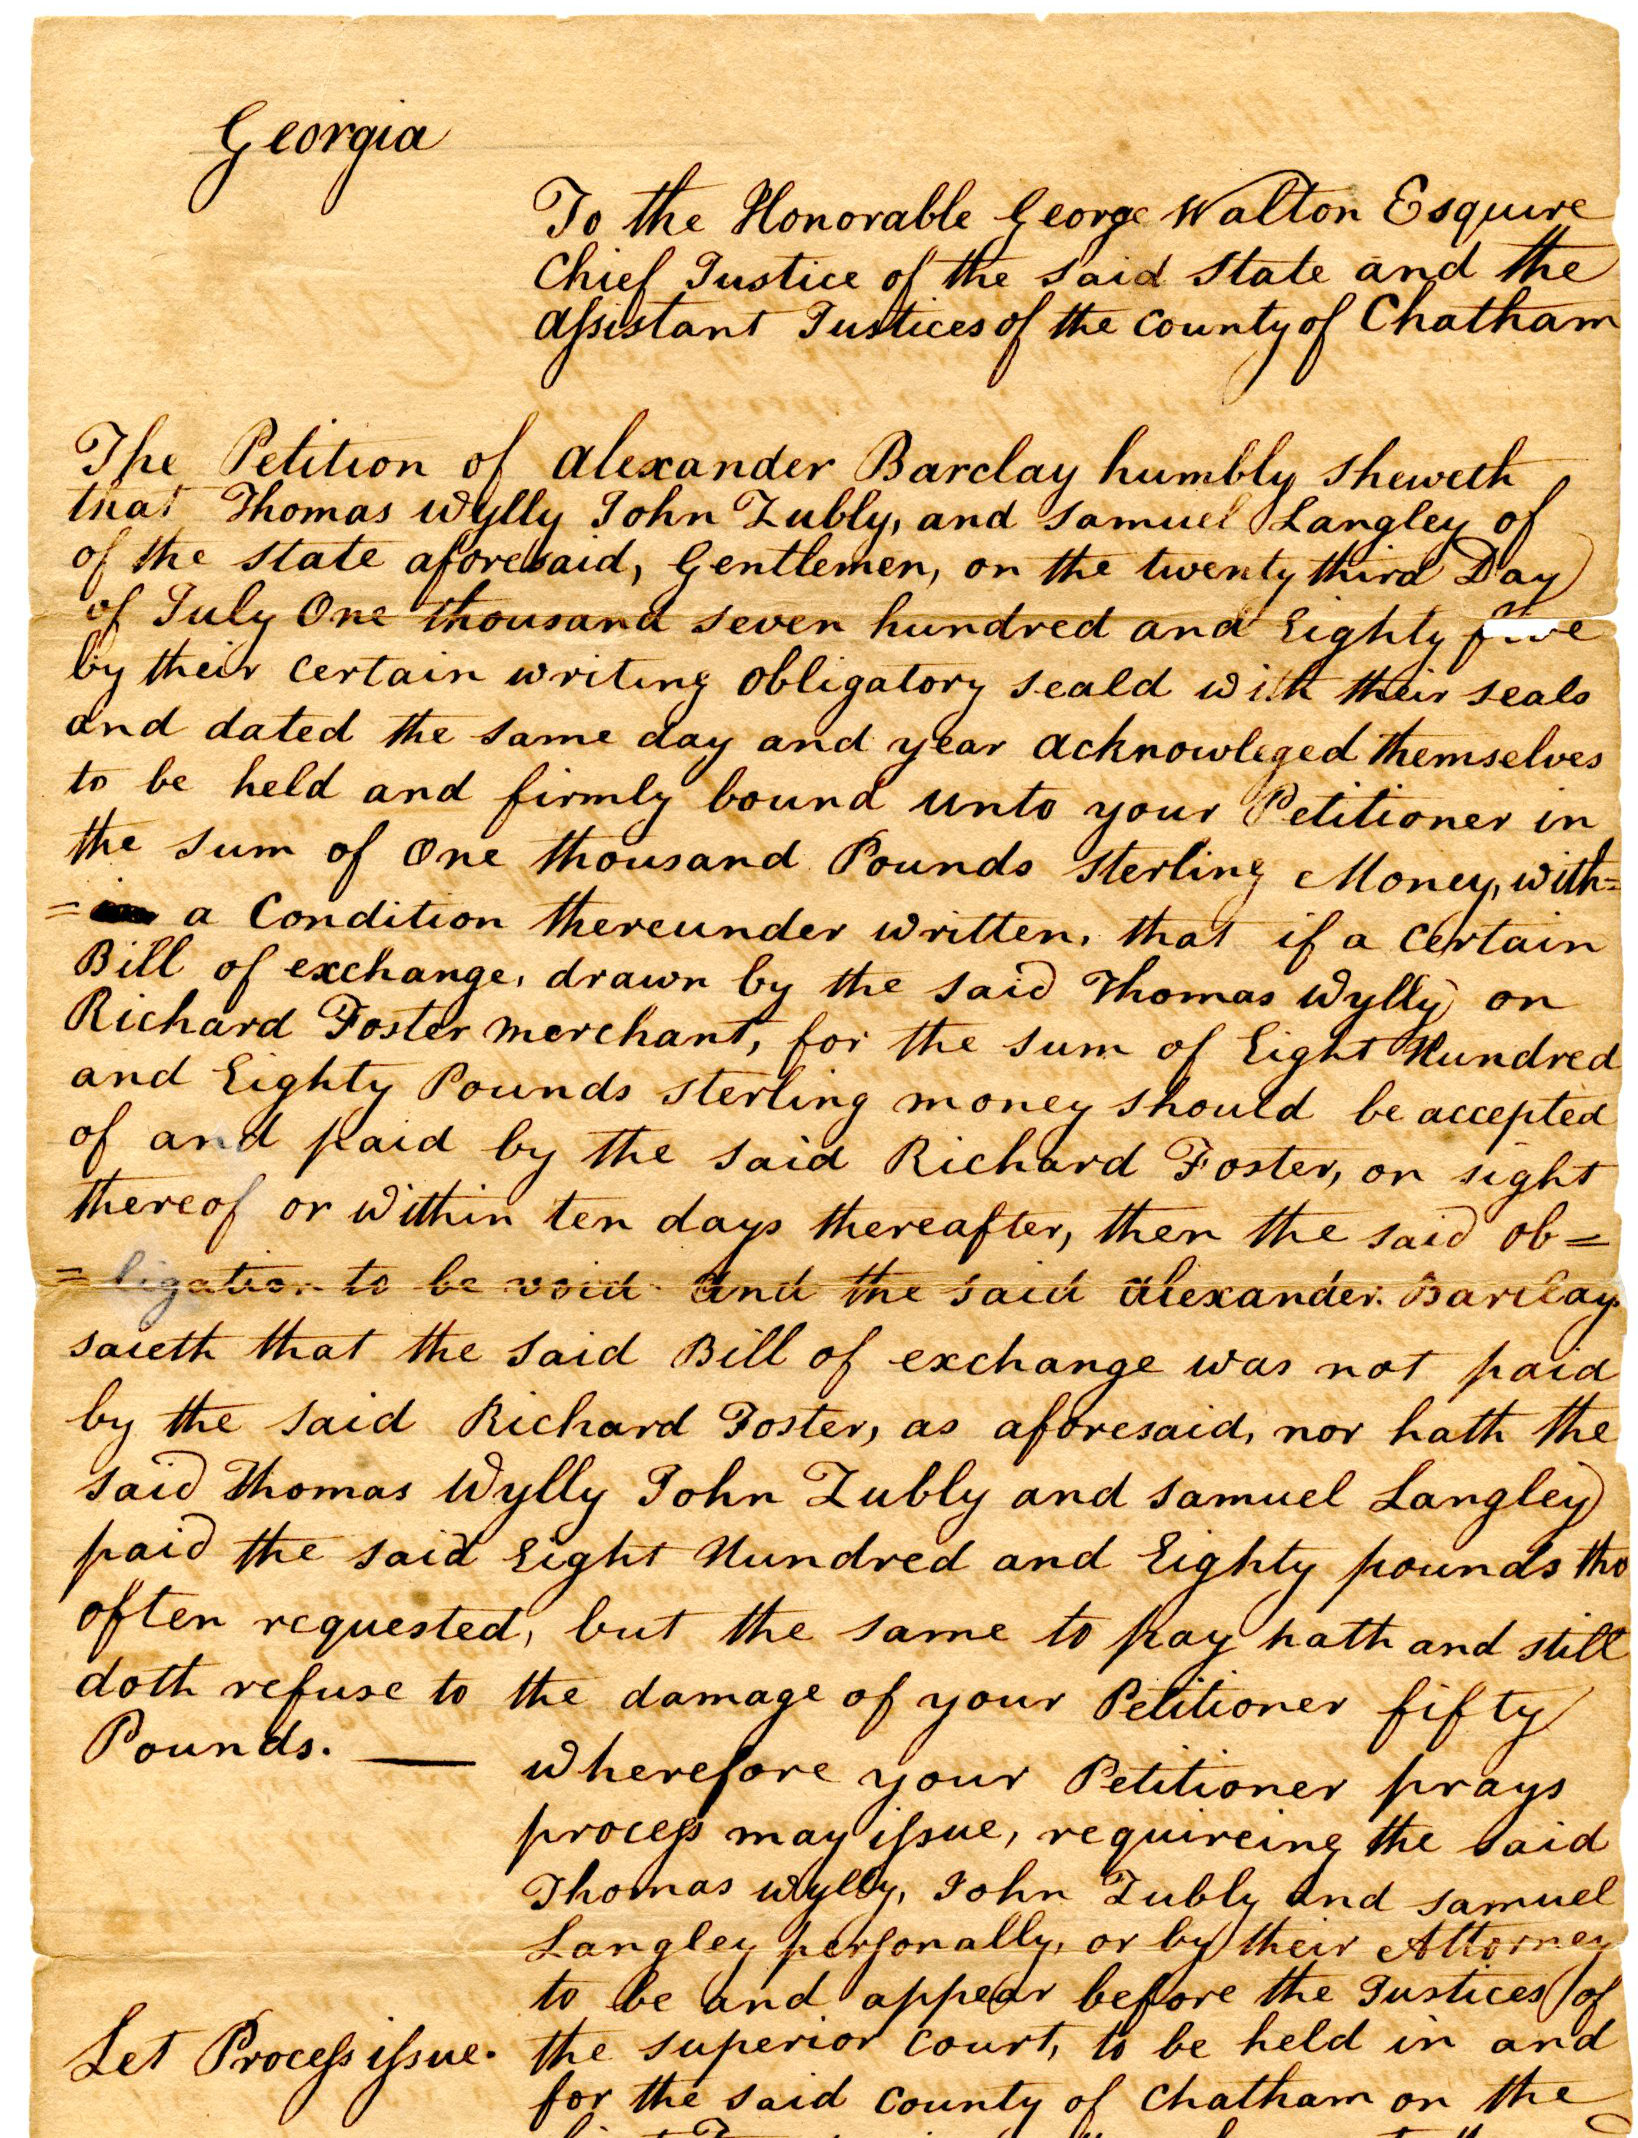 Georgia
To the Honorable George Walton Esquire
Chief Justice of the said State and the
assistant Justices of the County of Chatham
The Petition of Alexander Barclay humbly sheweth
that Thomas Wylly John Zubly, and Samuel Langley of
of the state aforesaid, Gentlemen, on the twenty third Day
of July One thousand seven hundred and Eighty five
by their certain writing obligatory seald with their seals
and dated the same day and year acknowleged themselves
to be held and firmly bound unto your Petitioner in
the sum of One thousand Pounds sterling Money, with=
= a Condition thereunder written, that if a certain
Bill of exchange, drawn by the said Thomas Wylly on
Richard Foster merchant, for the sum of Eight Hundred
and Eighty Pounds sterling money should be accepted
of and paid by the said Richard Foster, on sight
thereof or within ten days thereafter, then the said ob=
=ligation to be void and the said Alexander Barclay
saieth that the said Bill of exchange was not paid
by the said Richard Foster, as aforesaid, nor hath the
said Thomas Wylly John Zubly and Samuel Langley
paid the said Eight Hundred and Eighty pounds tho
often requested, but the same to pay hath and still
doth refuse to the damage of your Petitioner fifty
Pounds. —
wherefore your Petitioner prays
process may issue, requireing the said
Thomas Wylly, John Zubly and Samuel
Langley personally, or by their Attorney
to be and appear before the Justices of
Let Process issue.
the superior Court, to be held in and
for the said County of Chatham on the